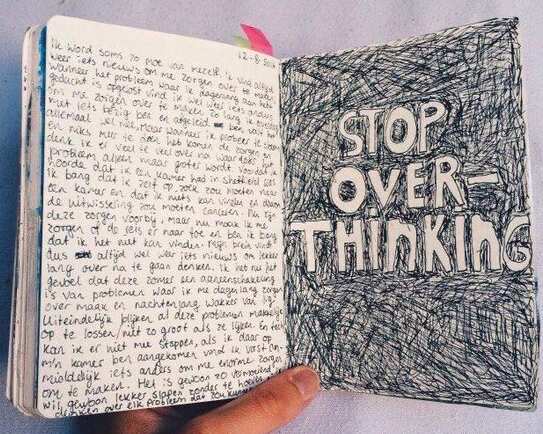 12-8-2016
Ik word soms zo moe van mezelf. 'k vind altijd
weer iets nieuws om me zorgen over te maken
wanneer het probleem waar ik dagenlang aan heb
gedacht is opgelost vind ik wel weer iets anders
om me zorgen over te maken. Zo lang ik maar
met iets bezig ben en afgeleid ben valt het
allemaal wel mee, maar wanneer ik probeer te slapen
en niks meer te doen heb komen de zorgen en
denk ik er veel te veel over na waardoor het
probleem alleen maar groter wordt. Voordat ik
hoorde dat ik een kamer had in Sheffield was
ik bang dat ik zelf op zoek zou moeten naar
een kamer en dat ik niets kan vinden en daarom
de uitwisseling zou moeten cancelen. Nu zijn
deze zorgen voorbij, maar nu maak ik me
zorgen of de reis er naar toe en ben ik bang
dat ik het niet kan vinden. Mijn brein vindt
dus altijd wel weer iets nieuws om lekker
lang over na te gaan denken. Ik heb nu het
gevoel dat deze zomer een aaneenschakeling
is van problemen waar ik me dagenlang zorgen
over maak en nachtenlang wakker van lig.
Uiteindelijk blijken al deze problemen makkelijk
op te lossen/niet zo groot als ze lijken. En toch
kan ik er niet mee stoppen, als ik daar op
m'n kamer ben aangekomen vind ik vast on-
middelijk iets anders om me enorme zorgen
om te maken. Het is gewoon zo vermoeiend, ik
wil gewoon lekker slapen zonder te hoeven
denken over elk probleem dat zou kunnen
STOP
OVER-
THINKING